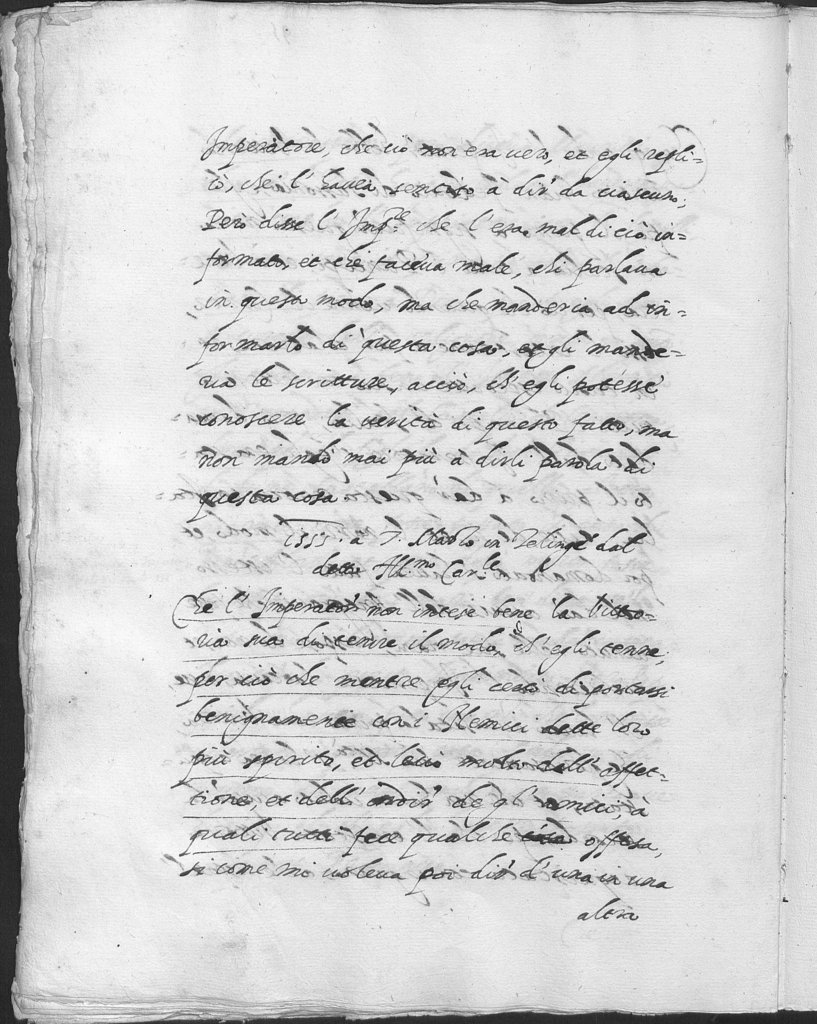 Imperatore, che ciò non era vero, et egli repli=
cò, che l' haueà sentito à dir da ciascuno;
Però disse l' Imp.re che l' era mal di ciò in=
formato, et che faceua male, chi parlaua
in questo modo, ma che manderia ad in=
formarlo di questa cosa, et gli mande=
ria le scritture, acciò, ch' egli potesse
conoscere la verità di questo fatto, ma
non mandò mai più à dirli parola di
questa cosa
1553. a 7. Marzo in Telinga dal
detto Ill.mo Car.le
Che l' Imperator non intese bene la Vitto=
ria sua di tenire il modo, ch' egli tenne,
per ciò che mentre egli cercò di portarsi
benignamente con i Nemici dette loro
più spirito, et leuò molto dall' affet=
tione, et dell' ardir de gl' amici, à
quali tutti fece qualche offesa,
si come mi uoleua poi dir d' una in una
altra